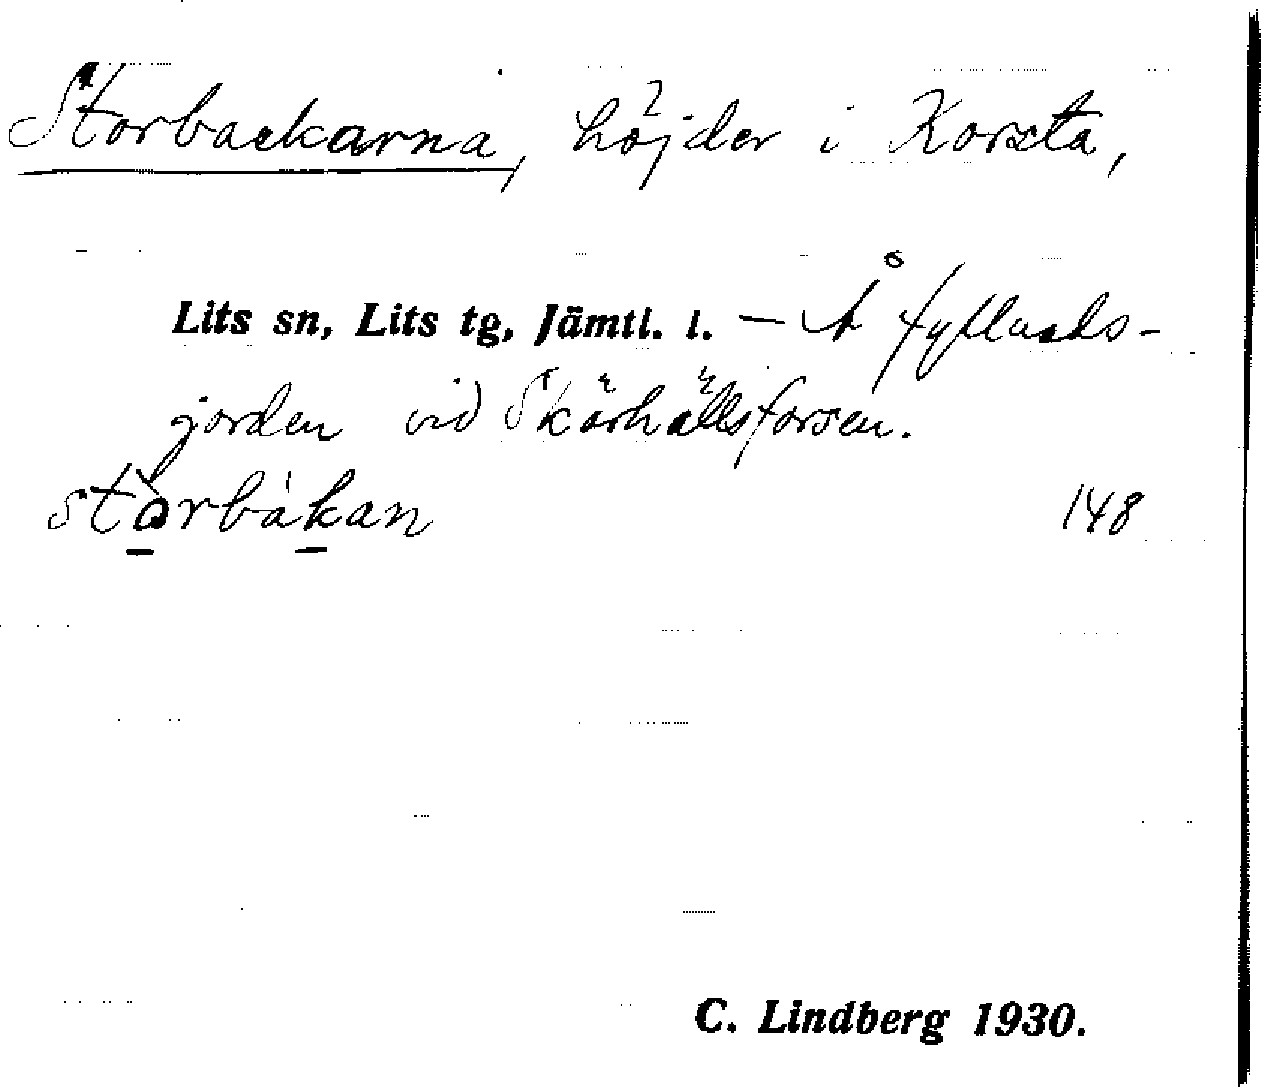 Storbackarna, höjder i Korsta,
Lits sn, Lits tg, Jämtl. l. — Å fyllnads-
jorden vid Skärhällsforsen.
stòrbákan 148
C. Lindberg 1930.